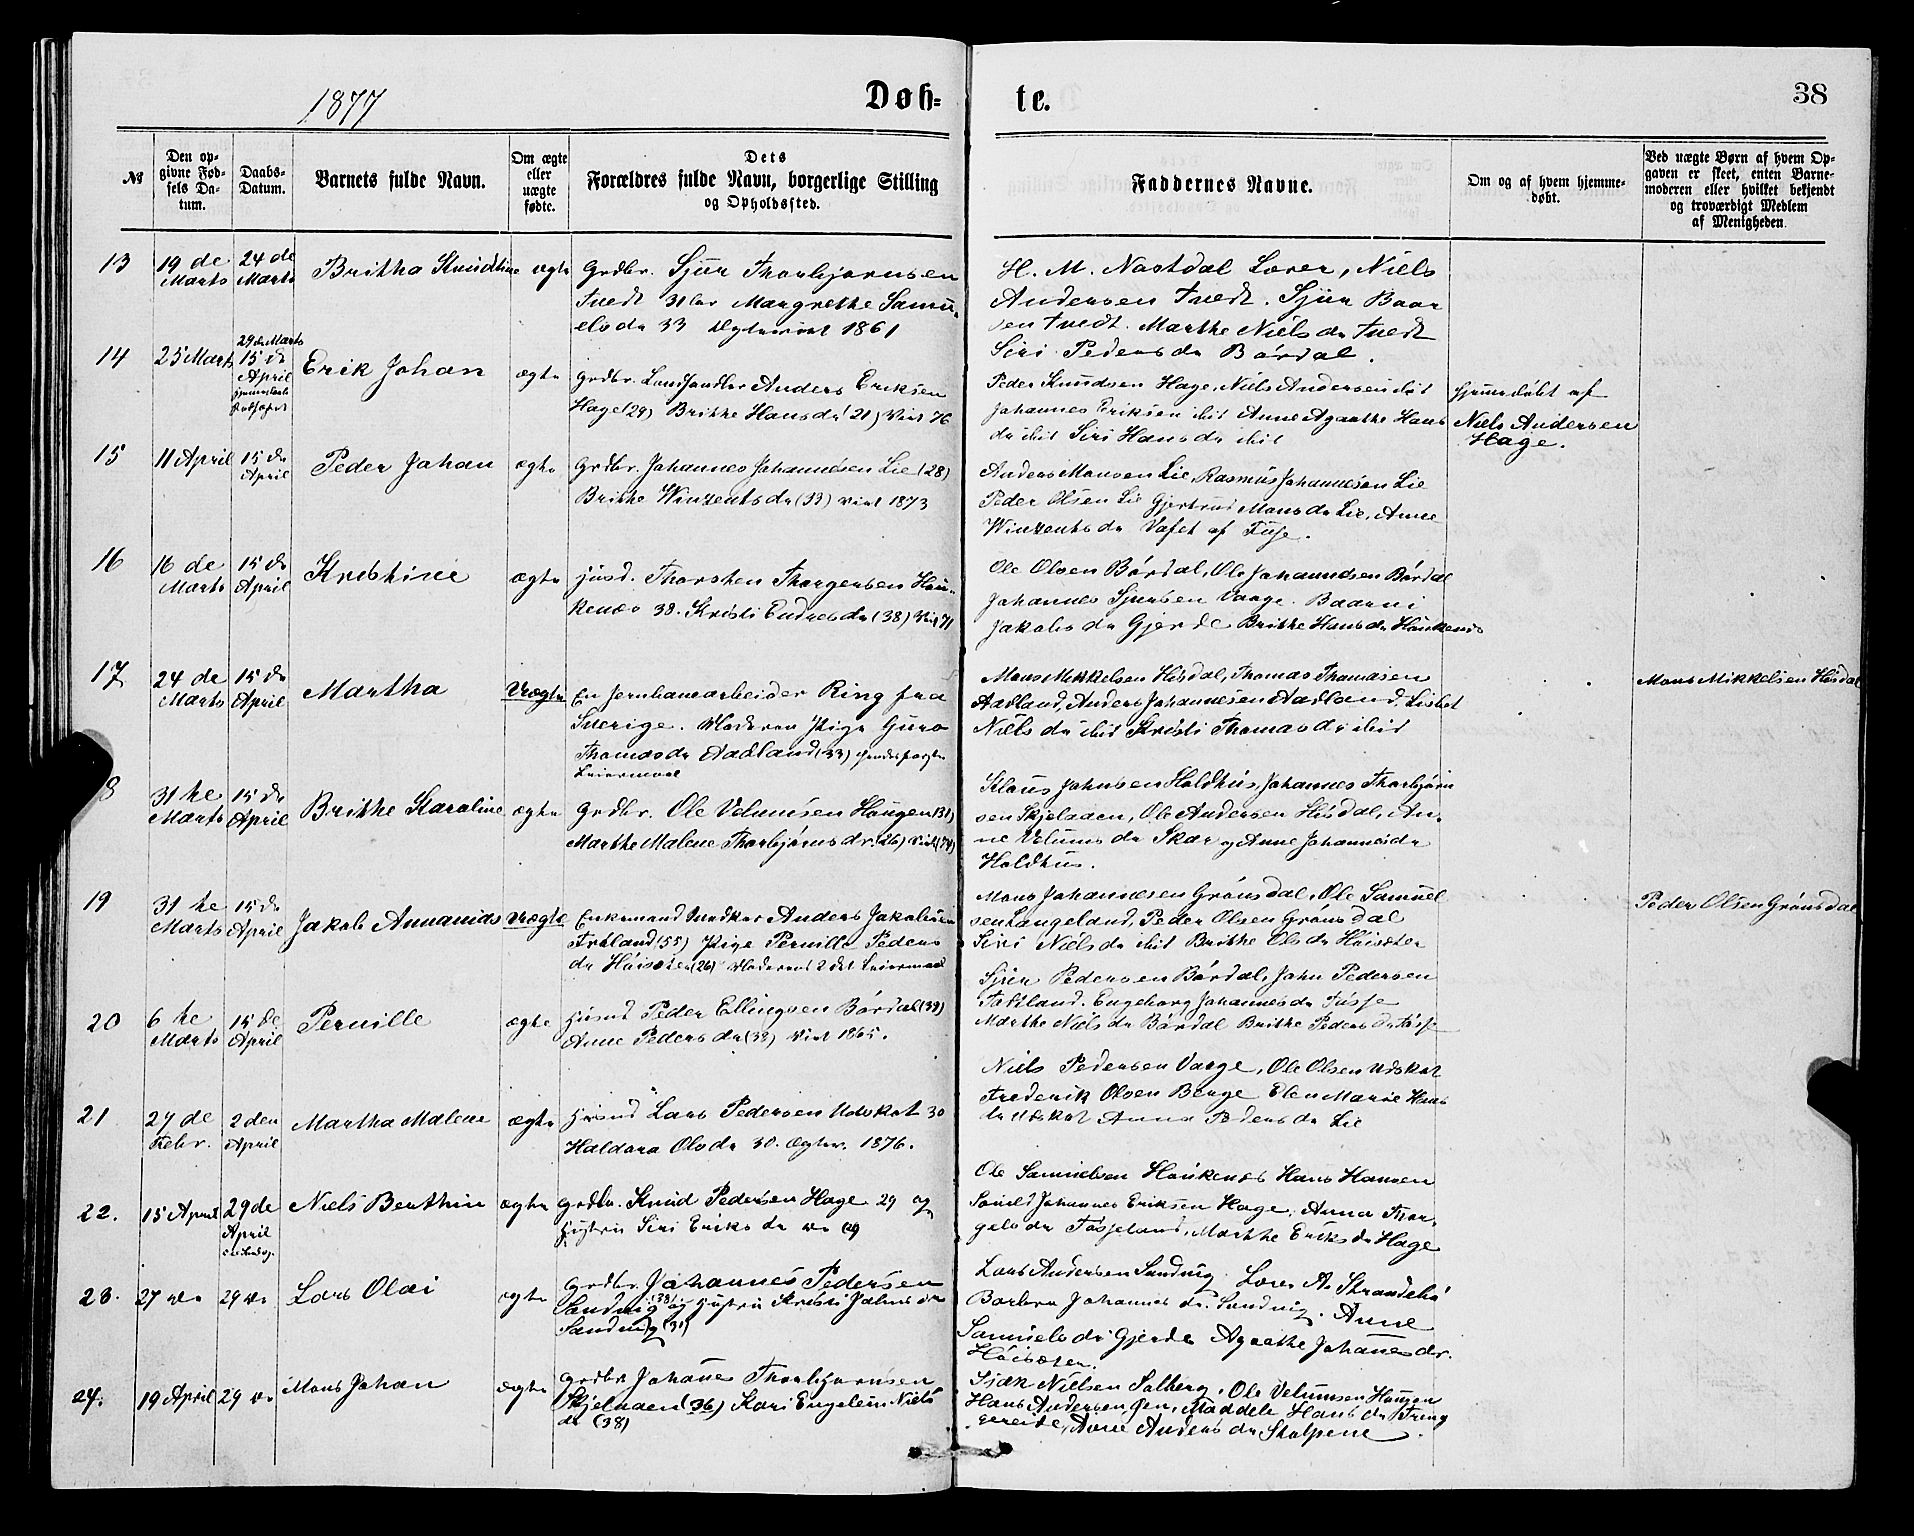 1877
Døb-
te.
38
№
Den op-
givne Fød-
sels Da-
tum.
Daabs-
Datum.
Barnets fulde Navn.
Om ægte
eller
uægte
fødte.
Dets
Forældres fulde Navn, borgerlige Stilling
og Opholdssted.
Faddernes Navne.
Om og af hvem hjemme-
døbt.
Ved uægte Børn af hvem Op-
gaven er skeet, enten Barne-
moderen eller hvilket bekjendt
og troværdigt Medlem
af Menigheden.
13
19 de
Marts
24 de
Marts
Britha Knudline
ægte
Grdbr. Sjur Thorbjørnsen
Tvedt 31 Margrethe Samu-
elsdr 33 1861
H. M. Nastdal Lærer, Niels
Andersen Tvedt. Sjur Baar
sen Tvedt. Marthe Nielsdr Tvedt
Siri Pedersdr Bårdal.
14
25 Marts
29 de Marts
15 de
April
Erik Johan
ægte
Grdbr. Landhandler Anders Eriksen
Hage (29) Brithe Hansdr (21) Viet 76
Peder Knudsen Hage, Niels Andersen ibid
Johannes Eriksen ibid Anne Agaathe Hans
dr ibid Siri Hansdr ibid
Hjemmedøbt af
Niels Andersen
Hage.
15
11 April
15 de
April
Peder Johan
ægte
Grdbr. Johannes Johannesen Lie (28)
Brithe Winzentsdr (33) viet 1873
Anders Monsen Lie, Rasmus Johannesen Lie
Peder Olsen Lie Gjertrud Monsdr Lie, Anne
Winzentsdr Vafet af Fuse.
16
16 de
Marts
15 de
April
Kristine
ægte
Husd. Thorsten Thorgersen Hau-
kenæs 38. Kristi Endresdr (38) Viet 71
Ole Olsen Bårdal, Ole Johannesen Bårdal
Johannes Sjursen Vaage. Baarni
Jakobsdr Gjerde Brithe Hansdr Haukenæs
17
24 de
Marts
15 de
April
Martha
Uægte
En Jernbanearbeider Ring fra
Sverige. Moderen Pige Guro
Thomasdr Aadland (33)
Leiermaal
Mons Mikkelsen Hisdal, Thomas Thomasen
Aadland, Anders Johannesen Aadland, Lisbet
Nielsdr ibid Kristi Thomasdr ibid
Mons Mikkelsen Hisdal
8
31 te
Marts
15 de
April
Brithe Karoline
ægte
Grdbr. Ole Velumsen Haugen (31)
Marthe Malene Thorbjørnsdr. (26) Viet (74)
Klaus Johnsen Holdhus, Johannes Thorbjørn
sen Skjeladen, Ole Andersen Hisdal, An-
ne Velumsdr Skar og Anne Johannesdr
Holdhus.
19
31 te
Marts
15 de
April
Jakob Annanias
Uægte
Enkemand Anders Jakobsen
Træland (55) Pige Pernille Peders
dr Høisæter (26) Moderens 2det Leiermaal
Mons Johannesen Grønsdal, Ole Samuel
sen Langeland, Peder Olsen Grønsdal
Siri Nielsdr ibid Brithe Olsdr Høisæter
Peder Olsen Grønsdal
20
6 te
Marts
15 de
April
Pernille
ægte
Husmd Peder Ellingsen Bårdal (39)
Anne Pedersdr (32) Viet 1865.
Sjur Pedersen Bårdal, John Pedersen
Tøsseland. Engeborg Johannesdr Tøsse
Marthe Nielsdr Bårdal Brithe Pedersdr Tøsse
21
27 de
Febr.
2 den
April
Martha Malene
ægte
Husmd Lars Pedersen Udskot 30
Haldora Olsdr 30. Ægtev. 1876.
Niels Pedersen Vaage, Ole Olsen Udskot
Frederik Olsen Berge Elen Marie Hans
dr Udskot Anna Pedersdr Lie
22.
15 April
29 de
April
Niels Berthin
ægte
Grdbr. Knud Pedersen Hage 29 og
Hustru Siri Eriksdr
Ole Samuelsen Haukenæs Hans Hansen
Johannes Eriksen Hage, Anna Thor-
gelsdr Tøsseland, Marthe Eriksdr Hage
23.
27 do
29 do
Lars Olai
ægte
Grdbr. Johannes Pedersen
Sandvig (38) og Hustru Kristi Johnsdr
Sandvig (31)
Lars Andersen Sandvig. Lærer A. Strandebø
Barbra Johannesdr. Sandvig. Anne
Samuelsdr Gjerde Agaathe Johannesdr.
Høisæter.
24.
19 April
29 do
Mons Johan
ægte
Grdbr. Johannes Thorbjørnsen
Skjeladen (36) Kari Engelein Niels
dr (38)
Isak Nielsen Solberg, Ole Velumsen Haugen
Hans Andersen Jen, Maddele Hansdr Treng
ereide, Anne Andersdr Skolpene.